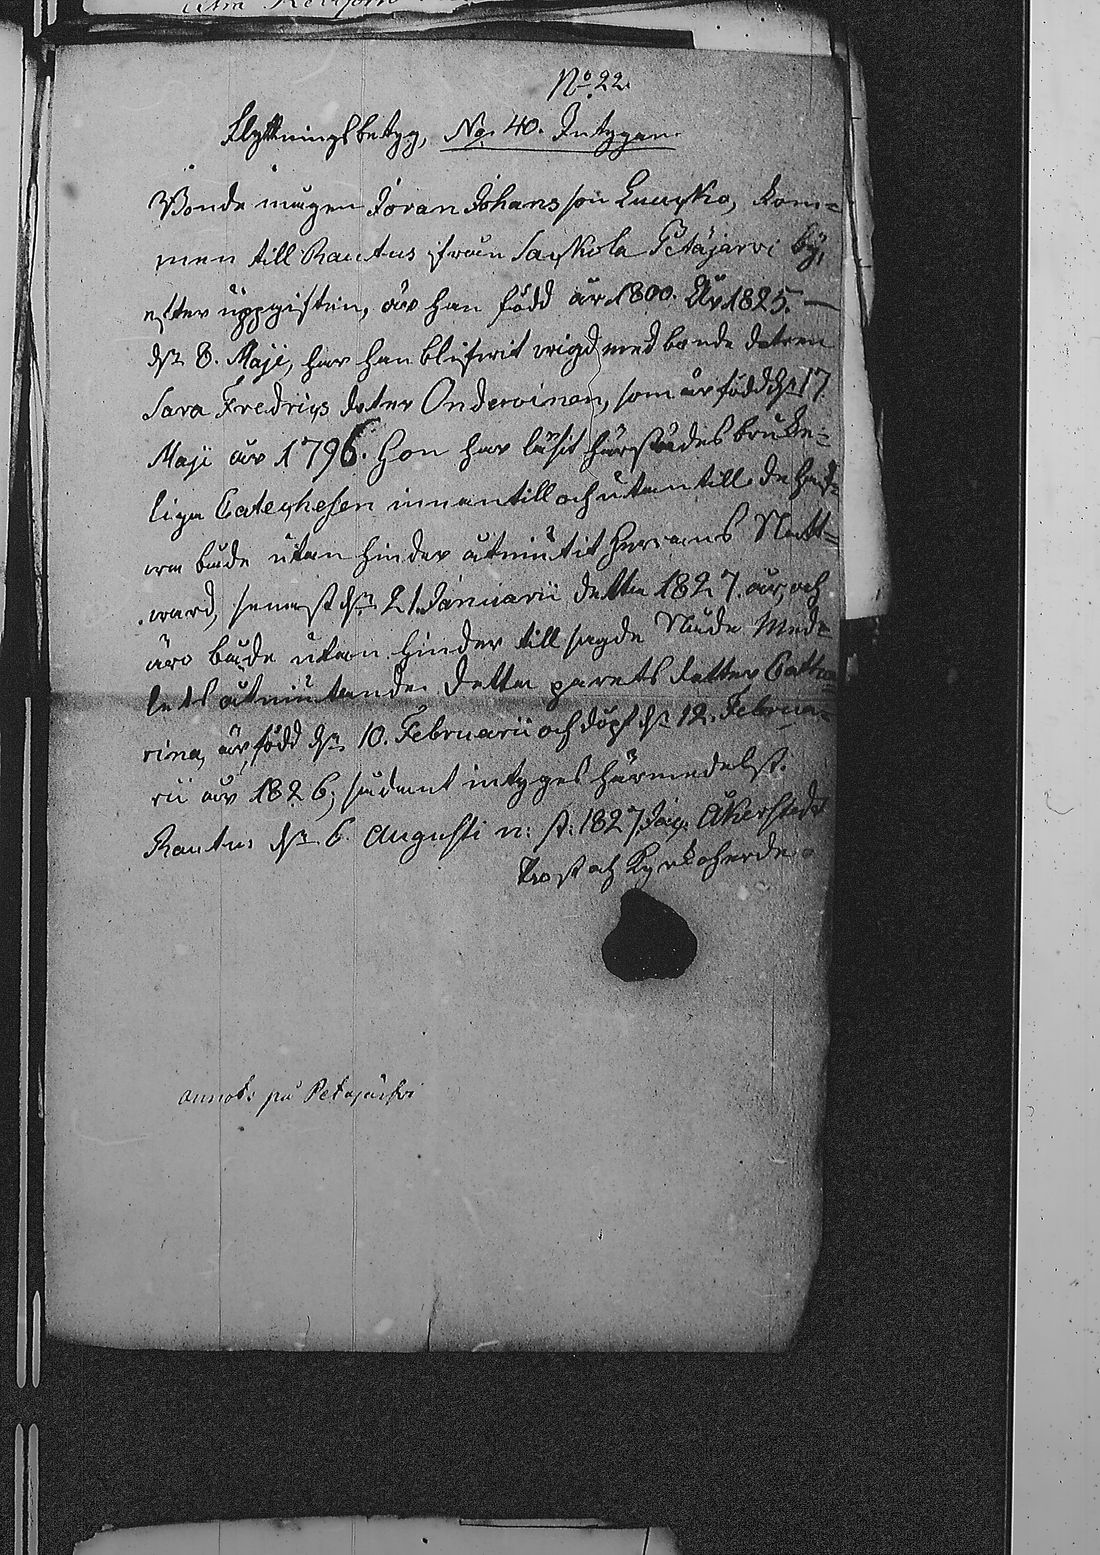 No 22.
Flyttningsbetyg, No. 40. Intygan.
Bonde mågen Jöran Johansson Luukko, kom=
men till Rautus ifrån Sackola Petäjärvi by,
efter uppgiften, är han född år 1800. År 1825. —
dn 8. Maji, har han blifwit vigd med bonde dotren
Sara Fredrics doter Onderoinen, som är född dn 17
Maji år 1796. Hon har läsit härstädes bruke=
liga Catechesen innantill och utantill. De haf=
va både utan hinder åtniutit Herrans Natt=
ward, senast dn 21 Januarii detta 1827. år, och
äro både utan hinder till sagde Nåde Mede
lets åtniutande. Detta parets dotter Catha
rina, är född dn 10. Februarii och döpt dn 12. Februa=
rii år 1826; sådant intyges härmedelst.
Rautus dn 6. Augusti n: st: 1827. Åkerstedt
Prost och Kyrkoherde
annot: på Petäjärfvi